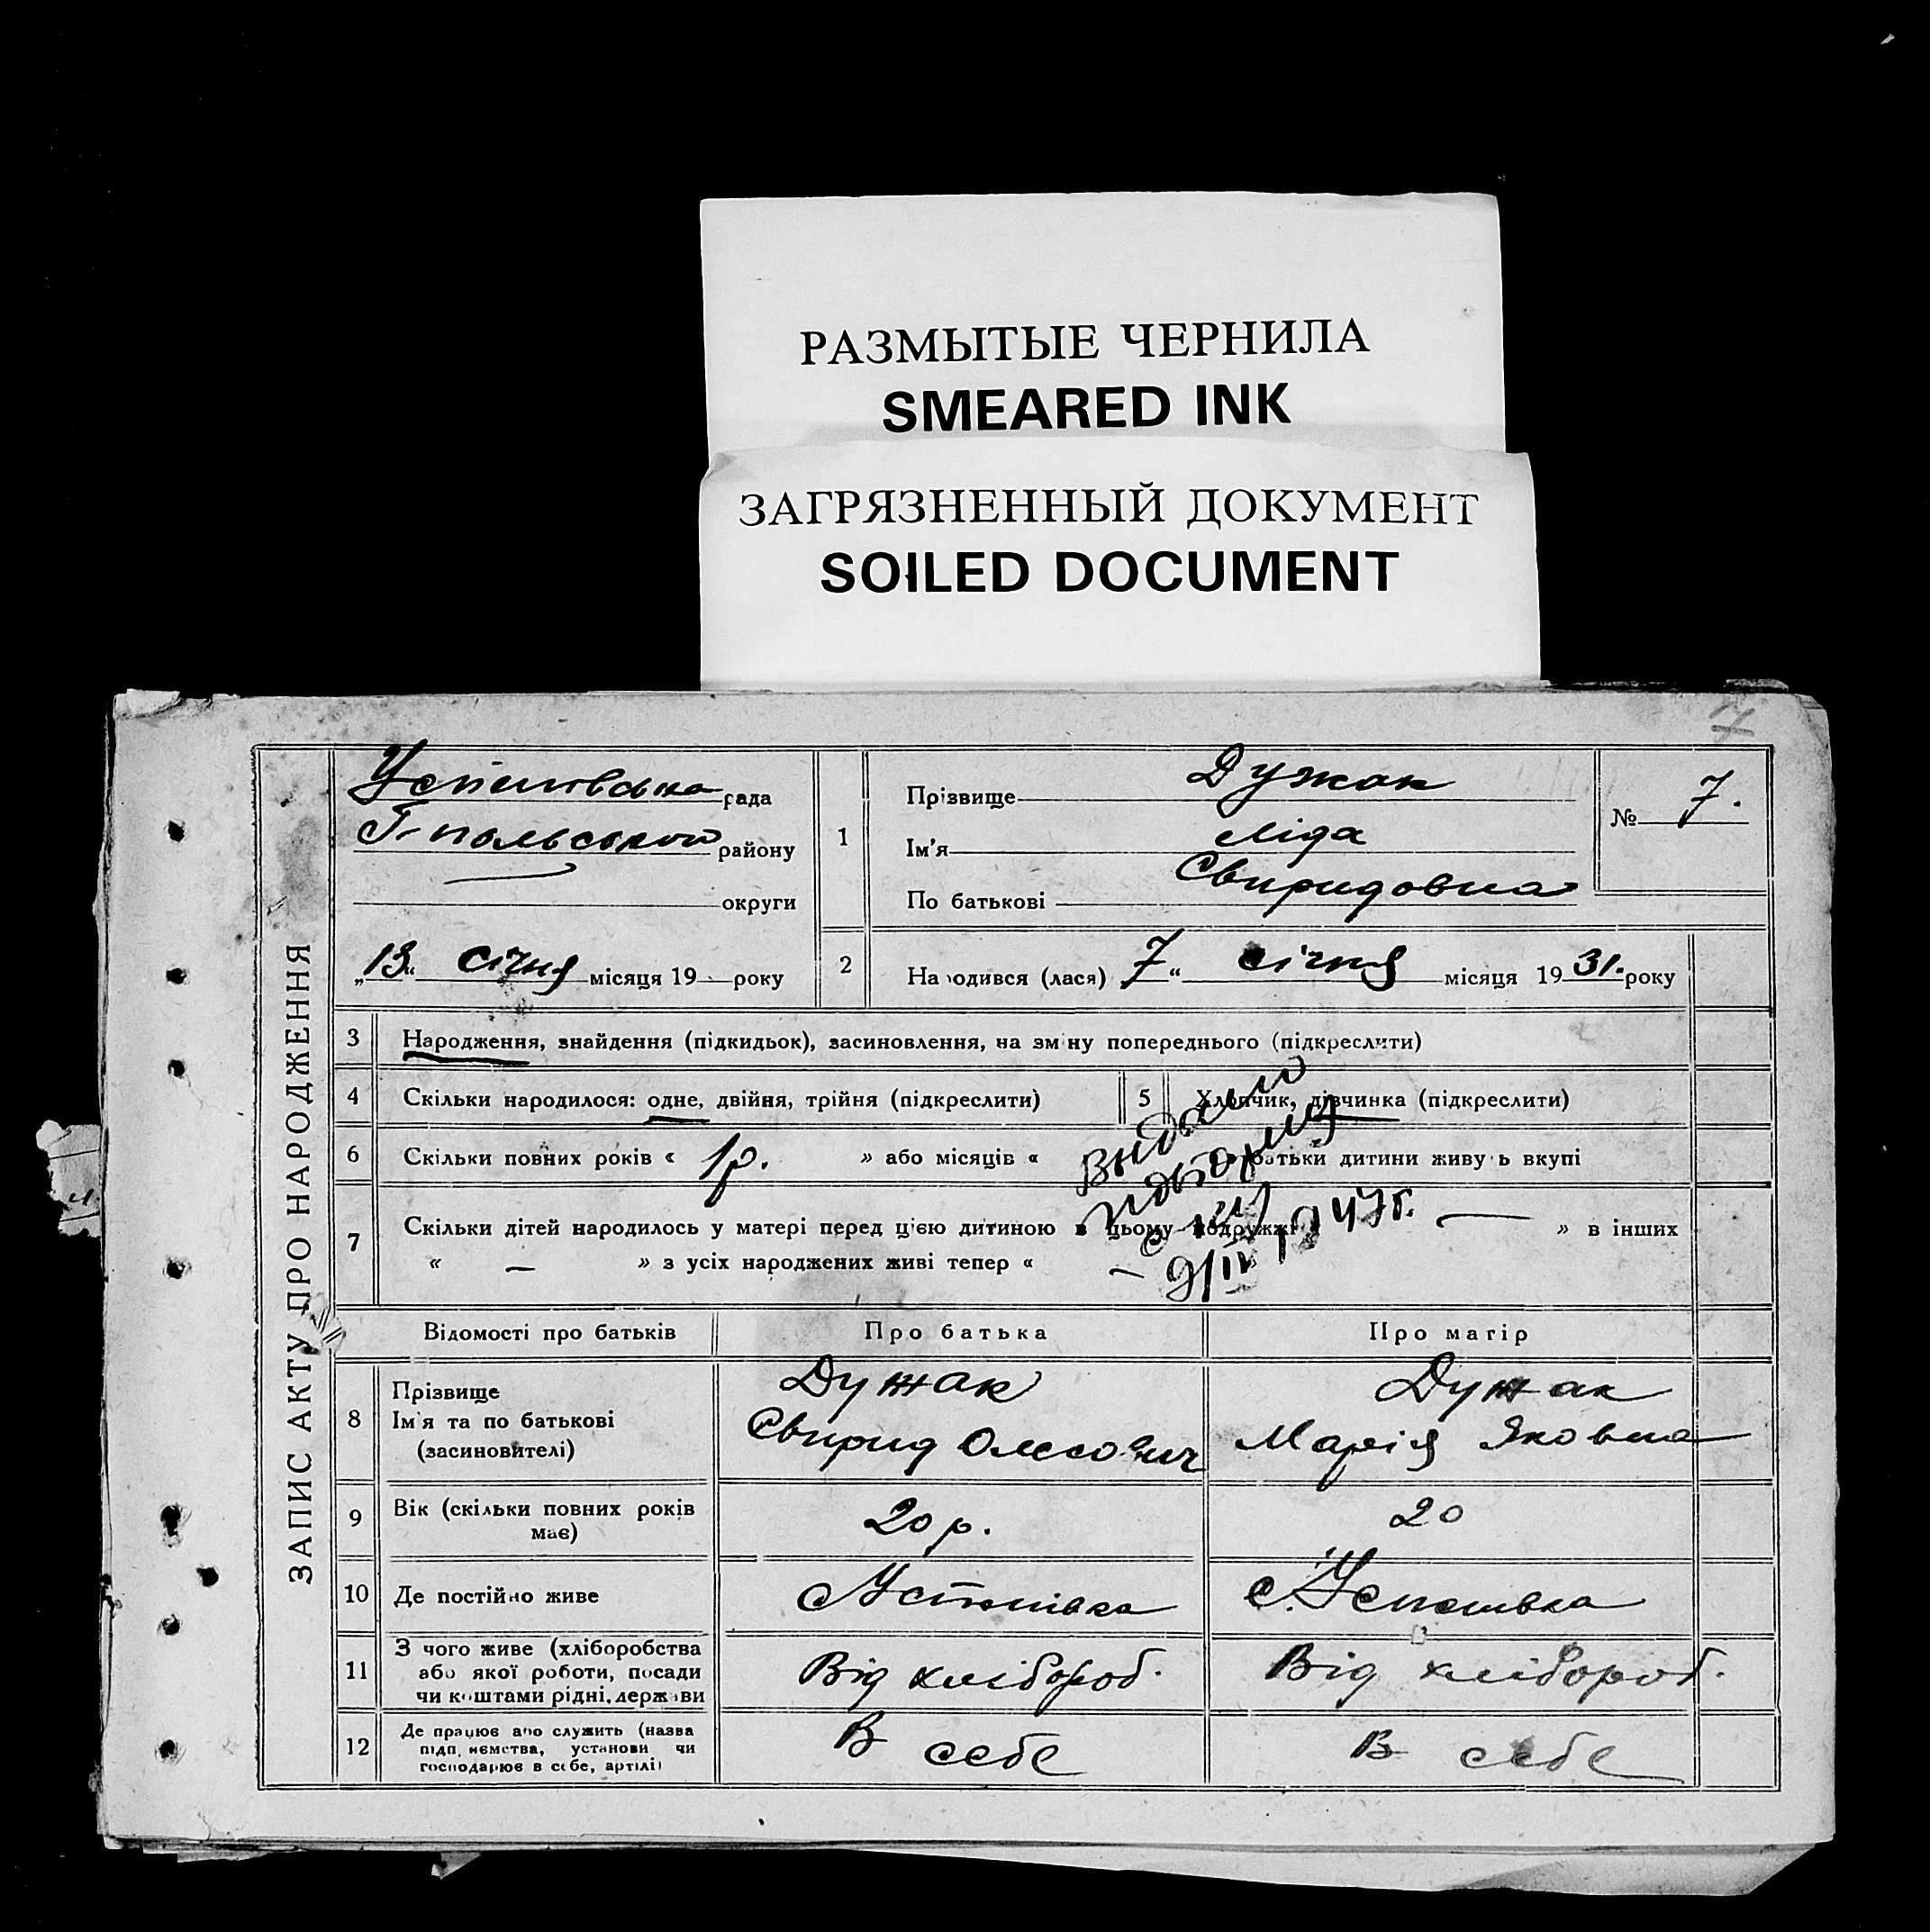 РАЗМЫТЫЕ ЧЕРНИЛА
SMEARED INK
ЗАГРЯЗНЕННЫЙ ДОКУМЕНТ
SOILED DOCUMENT
7
ЗАПИС АКТУ ПРО НАРОДЖЕННЯ
рада
Г-польського району
округи
„13“ січня місяця 19 року
1
Прізвище Дужак
Ім'я Ліда
По батькові Свиридовна
№ 7.
2 Народився (лася) 7“ січня місяця 19 31. року
3 Народження, знайдення (підкидьок), засиновлення, на зміну попереднього (підкреслити)
4 Скільки народилося: одне, двійня, трійня (підкреслити)
5 Хлопчик, дівчинка (підкреслити)
6 Скільки повних років « 1р. » або місяців « батьки дитини живуть вкупі
7 Скільки дітей народилось у матері перед цією дитиною в цьому подружжі — » в інших
« — » з усіх народжених живі тепер « —
9/IV 1947г.
Відомості про батьків Про батька Про матір
8 Прізвище
Ім'я та по батькові
(засиновителі)
Дужак
Свирид
Дужак
Марія Яковна
9 Вік (скільки повних років
має)
20 р.
20
10 Де постійно живе
11 З чого живе (хліборобства
або якої роботи, посади
чи коштами рідні, держави
Від хлібороб.
Від хлібороб.
12 Де працює або служить (назва
підприємства, установи чи
господарює в себе, артілі)
В себе
В себе